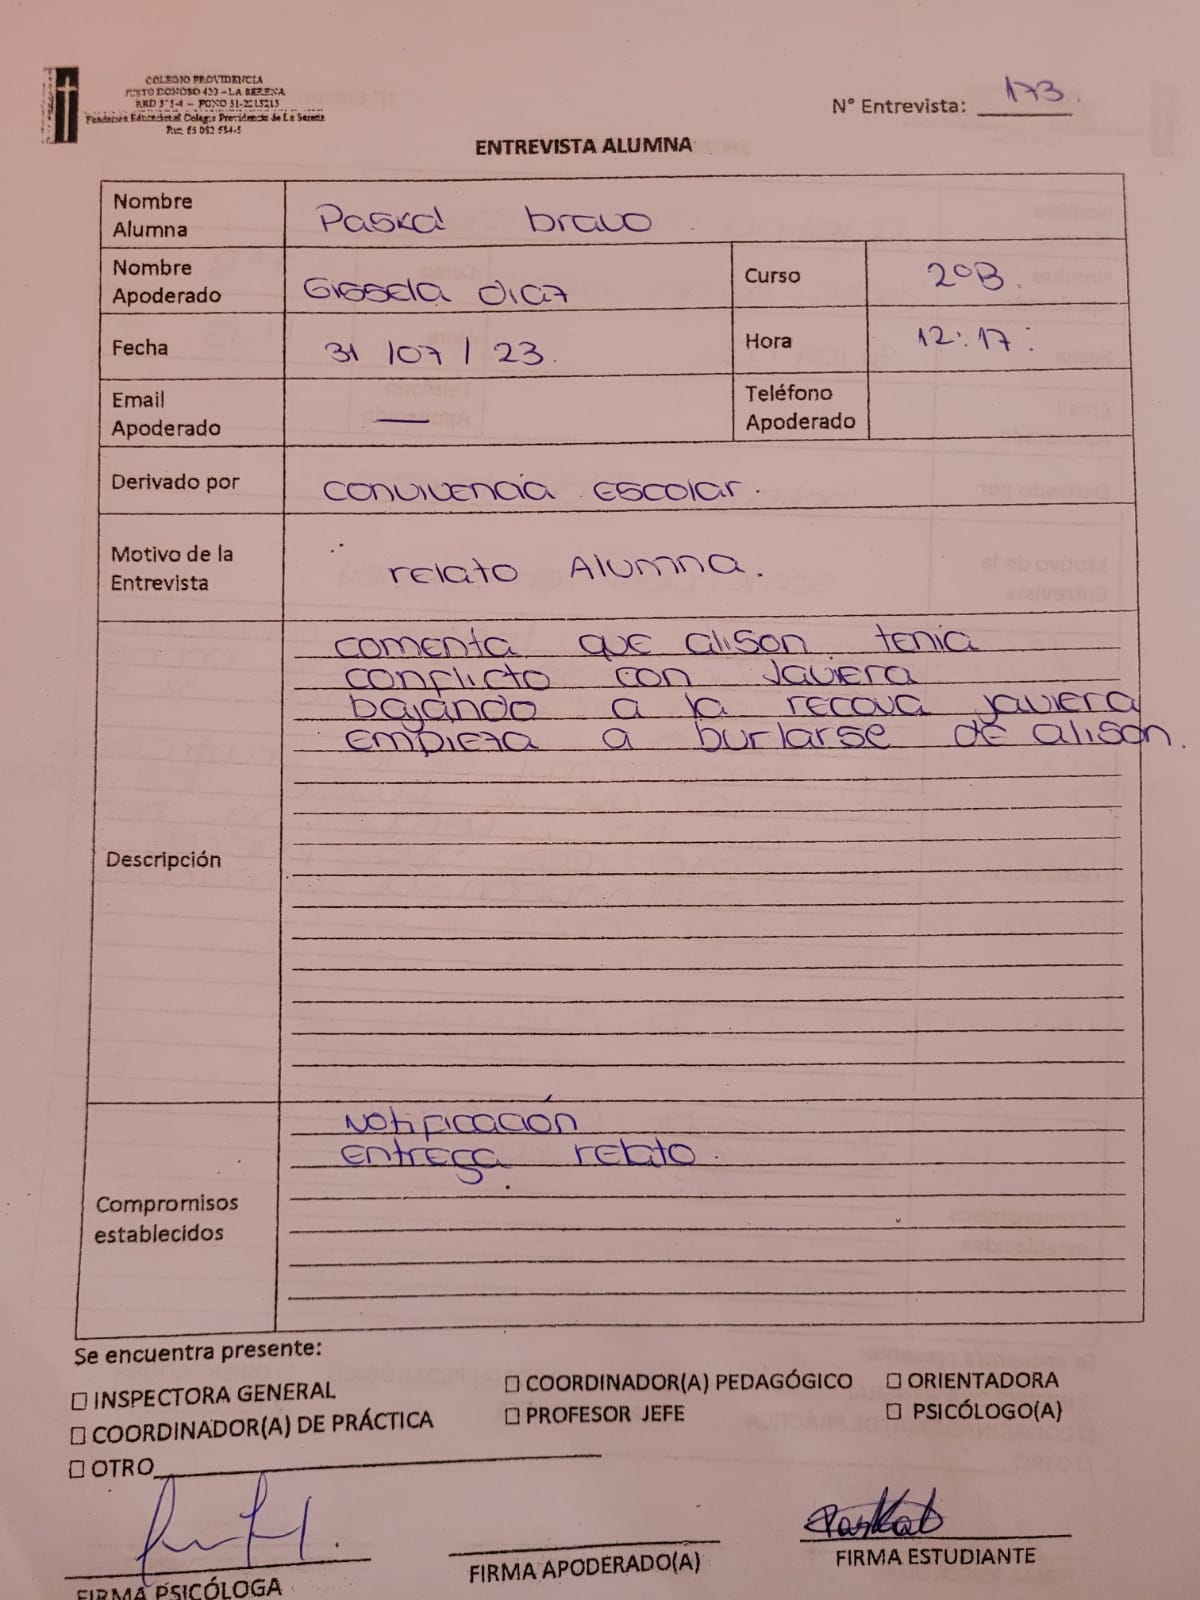 COLEGIO PROVIDENCIA
JUSTO DONOSO 420 – LA SERENA
RBD 574-4 – FONO 51-2215215
Fundación Educacional Colegio Providencia de La Serena
N° Entrevista: 173.
ENTREVISTA ALUMNA
Nombre Alumna
Paskal bravo
Nombre Apoderado
Gissela diaz
Curso
2ºB.
Fecha
31 / 07 / 23.
Hora
12:17:
Email Apoderado
—
Teléfono Apoderado
Derivado por
convivencia Escolar.
Motivo de la Entrevista
relato Alumna.
Descripción
comenta que alison tenia
conflicto con Javiera
bajando a la recova javiera
empieza a burlarse de alison.
Compromisos establecidos
Notificación
Entrega relato.
Se encuentra presente:
☐ INSPECTORA GENERAL
☐ COORDINADOR(A) PEDAGÓGICO
☐ ORIENTADORA
☐ COORDINADOR(A) DE PRÁCTICA
☐ PROFESOR JEFE
☐ PSICÓLOGO(A)
☐ OTRO
Paskal b
FIRMA PSICÓLOGA
FIRMA APODERADO(A)
FIRMA ESTUDIANTE